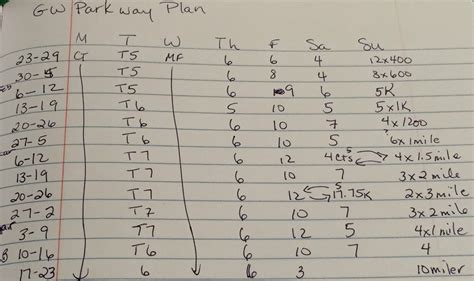 GW Parkway Plan
M T W Th F Sa Su
23-29 CT T5 MF 6 6 4 12x400
30-5 T5 6 8 4 8x600
6-12 T5 6 9 6 5K
13-19 T6 5 10 5 5x1K
20-26 T6 6 10 7 4x1200
27-5 T6 6 10 5 6x1mile
6-12 T7 6 12 4 4x1.5mile
13-19 T7 6 10 7 3x2mile
20-26 T7 6 12 5 17.75K 2x3mile
27-2 T7 6 10 7 3x2mile
3-9 T7 6 12 5 4x1mile
10-16 T6 6 10 7 4
17-23 6 6 3 10miler